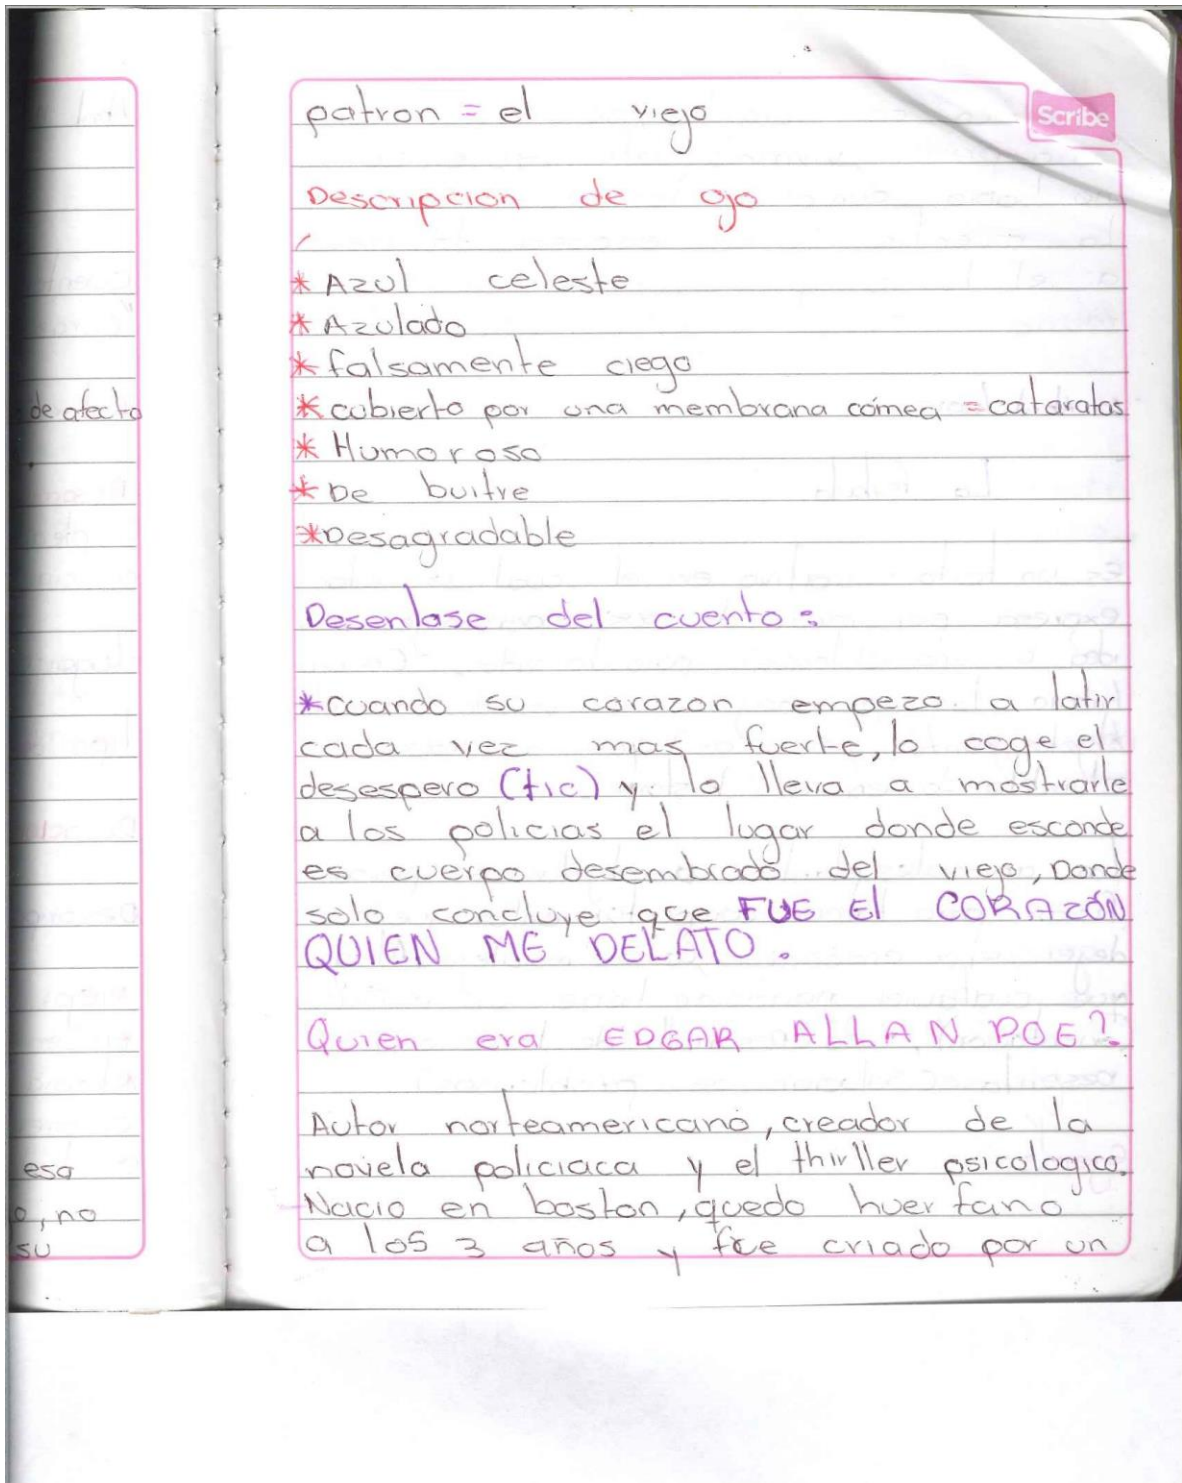 de afecto
esa
o, no
su
Scribe
patron = el viejo
Descripcion de ojo
* Azul celeste
* Azulado
* falsamente ciego
* cubierto por una membrana cornea = cataratas
* Humoroso
* De buitre
* Desagradable
Desenlase del cuento:
* cuando su corazon empezo a latir
cada vez mas fuerte, lo coge el
desespero (tic) y lo lleva a mostrarle
a los policias el lugar donde esconde
es cuerpo desembrado del viejo, Donde
solo concluye que FUE El CORAZÓN
QUIEN ME DELATO.
Quien era EDGAR ALLAN POE?
Autor norteamericano, creador de la
novela policiaca y el thirller psicologico.
Nacio en boston, quedo huerfano
a los 3 años y fue criado por un